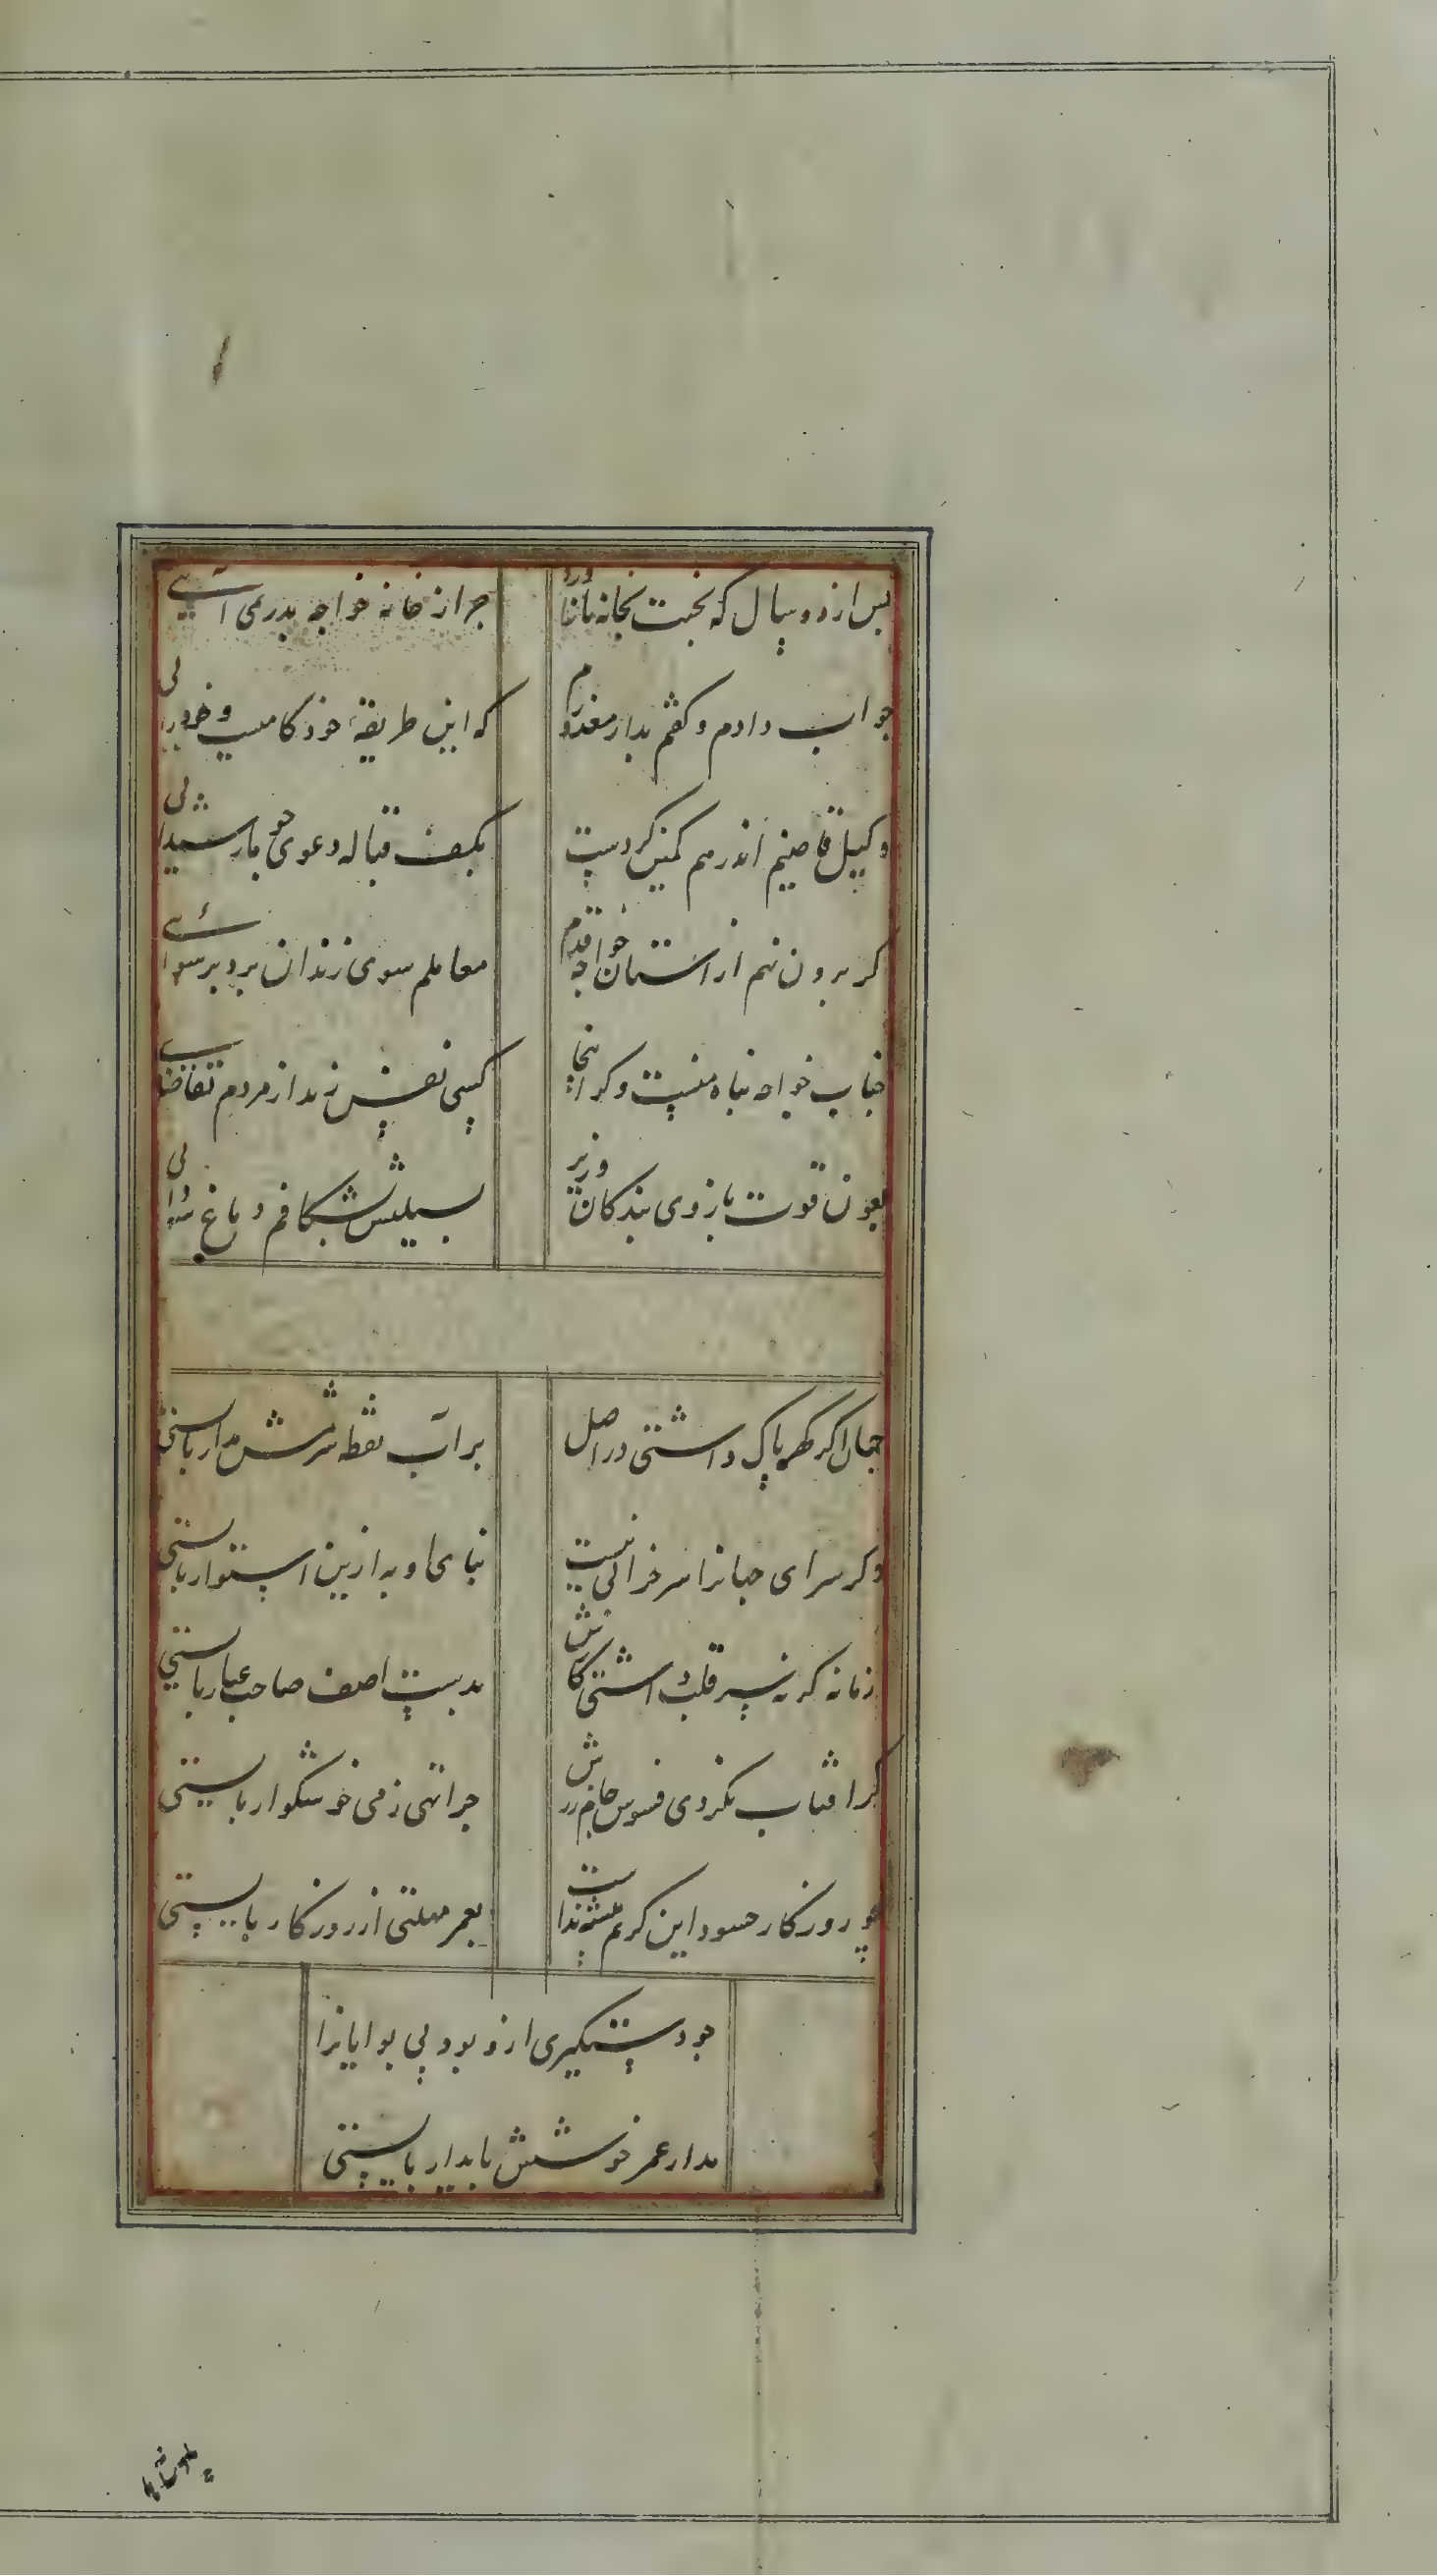 پس از دو سال که بختت بخانه باز آورد
چرا ز خانه خواجه بدر نمی آیی
جواب دادم و گفتم بدار معذورم
که این طریقه خودکامیست و خودرایی
وکیل قاضیم اندر گذر کمین کردست
بکف قباله دعوی چو مار شیدایی
که گر برون نهم از آستان خواجه قدم
معاملم سوی زندان برد برسوائی
جناب خواجه پناه منست و گر اینجا
کسی نفس زند از مردم تقاضایی
بعون قوت بازوی بندگان وزیر
بسیلیش بشکافم دماغ سودایی
جهان اگر گهر پاک داشتی در اصل
بر آب نقطه شرمش مدار بایستی
وگر سرای جهانرا سر خرابی نیست
بنای او به ازین استوار بایستی
زمانه گر نه سر قلب داشتی کارش
بدست آصف صاحب عیار بایستی
گر آفتاب نکردی فسوس جام زرش
چرا تهی ز می خوشگوار بایستی
چو روزگار حسود این کریم بیش نداشت
بعمر مهلتی از روزگار بایستی
چو دستگیری ازو بود بی نوایانرا
مدار عمر خوشش پایدار بایستی